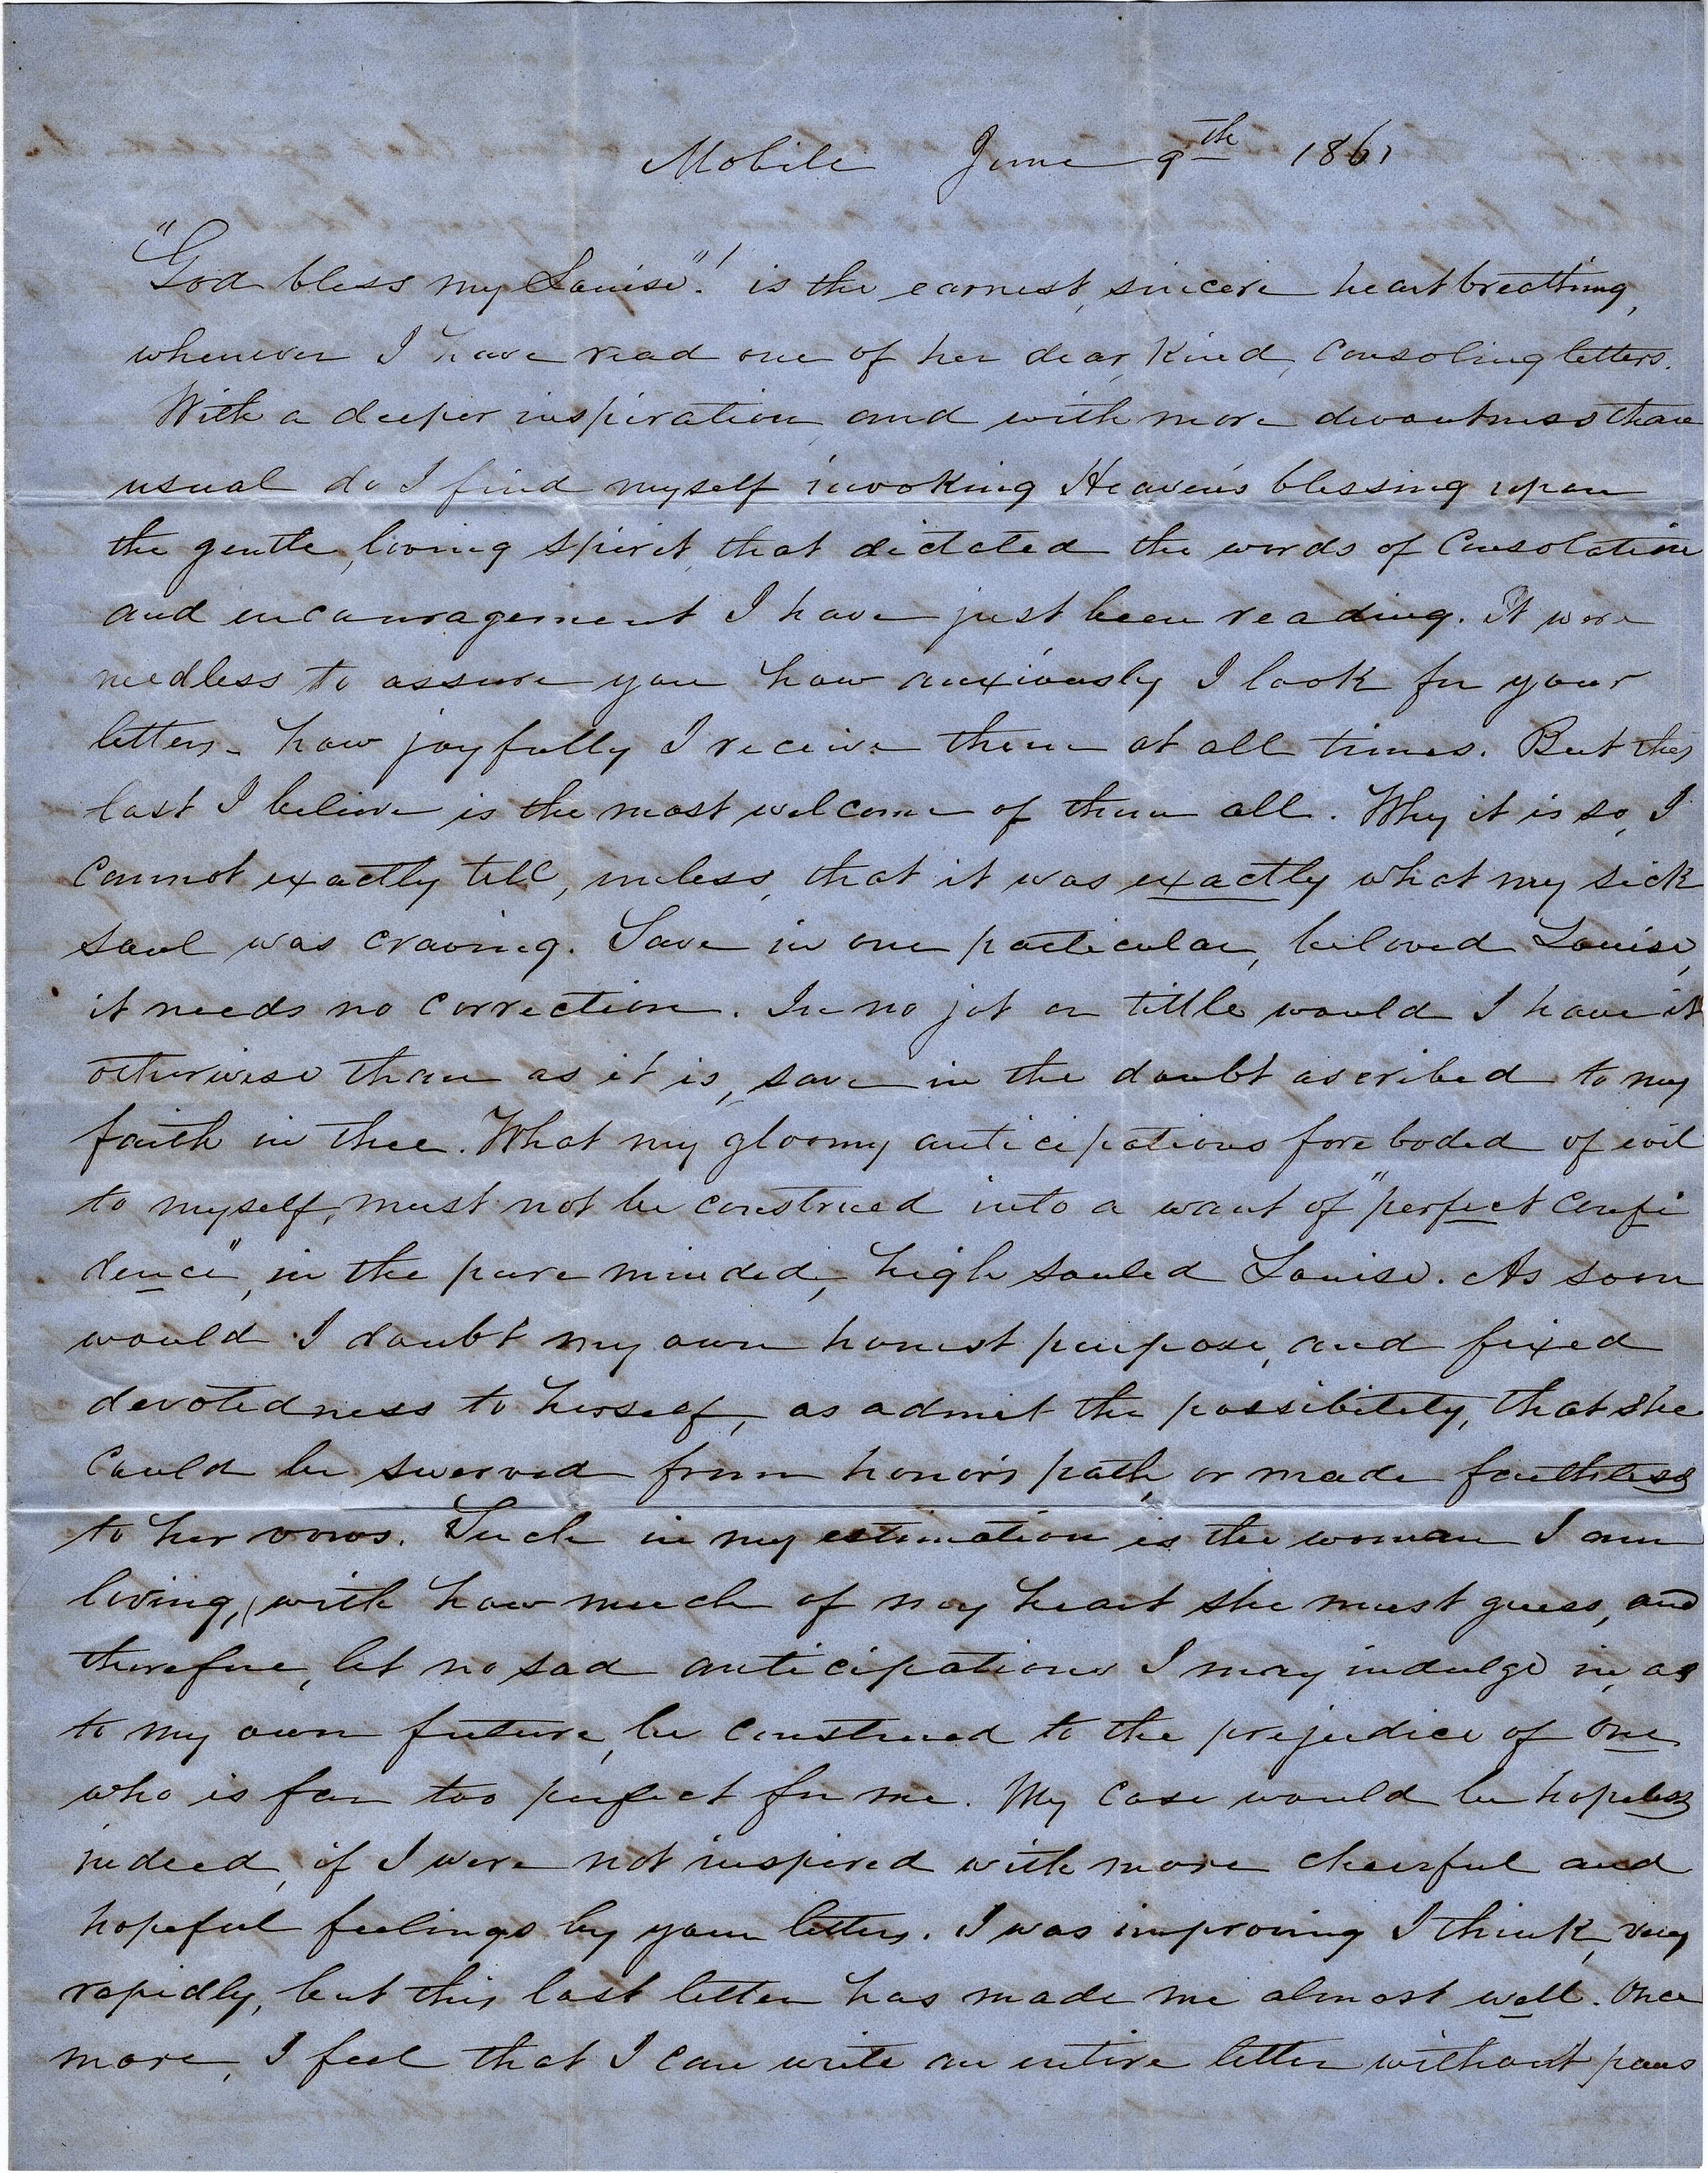 Mobile June 9th 1861
"God bless my Louise"! is the earnest, sincere heart breathing,
whenever I have read one of her dear, kind, consoling letters.
With a deeper inspiration, and with more devoutness than
usual do I find myself invoking Heaven's blessing upon
the gentle, loving spirit, that dictated the words of consolation
and encouragement I have just been reading. It were
needless to assure you how anxiously I look for your
letters - how joyfully I receive them at all times. But this
last I believe is the most welcome of them all. Why it is so, I
cannot exactly tell, unless, that it was exactly what my sick
soul was craving. Save in one particular, beloved Louise,
it needs no correction. In no jot or tittle would I have it
otherwise than as it is, save in the doubt ascribed to my
faith in thee. What my gloomy anticipations foreboded of evil
to myself, must not be construed into a want of "perfect confi
dence", in the pure minded, high souled Louise. As soon
would I doubt my own honest purpose, and fixed
devotedness to herself, as admit the possibility, that she
could be swerved from honor's path, or made faithless
to her vows. Such in my estimation is the woman I am
loving, with how much of my heart she must guess, and
therefore, let no sad anticipations I may indulge in, as
to my own future, be construed to the prejudice of one
who is far too perfect for me. My case would be hopeless
indeed, if I were not inspired with more cheerful and
hopeful feelings by your letters. I was improving I think, very
rapidly, but this last letter has made me almost well. Once
more, I feel that I can write an entire letter without paus